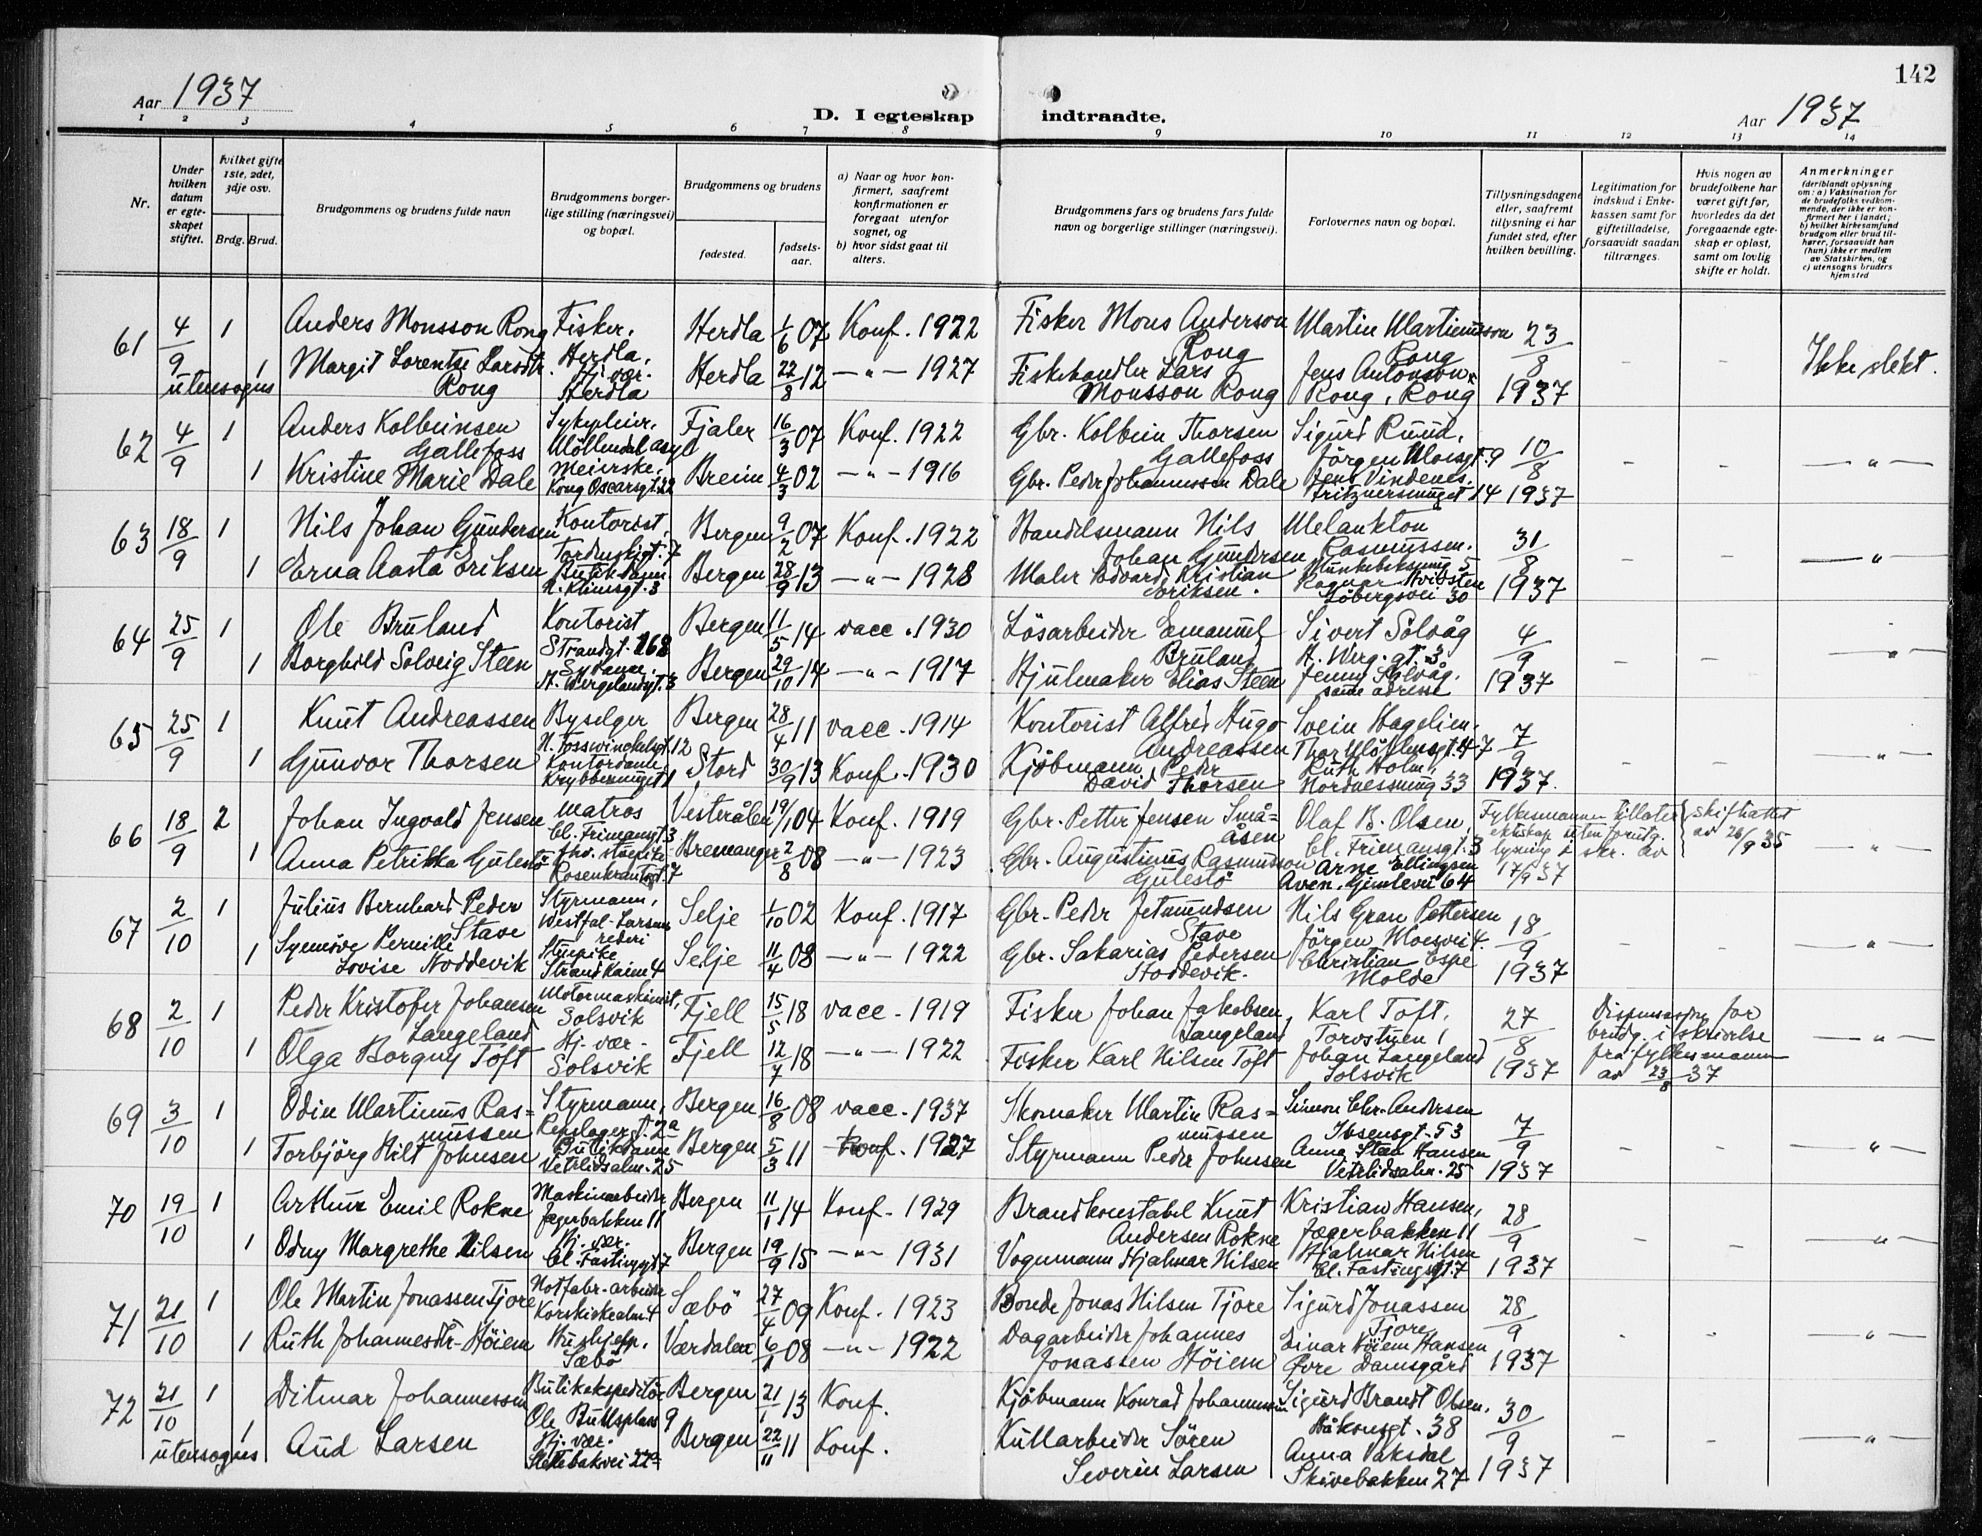 142
Aar 1937
D. I egteskap indtraadte.
Aar 1937
1 2 3 4 5 6 7 8 9 10 11 12 13 14
Nr.
Under hvilken datum er egteskapet stiftet.
Hvilket gifte 1ste, 2det, 3dje osv.
Brdg. Brud.
Brudgommens og brudens fulde navn
Brudgommens borgerlige stilling (næringsvei) og bopæl.
Brudgommens og brudens
fødested.
fødselsaar.
a) Naar og hvor konfirmert, saafremt konfirmationen er foregaat utenfor sognet, og
b) hvor sidst gaat til alters.
Brudgommens fars og brudens fars fulde navn og borgerlige stillinger (næringsvei).
Forlovernes navn og bopæl.
Tillysningsdagene eller, saafremt tillysning ei har fundet sted, efter hvilken bevilling.
Legitimation for indskud i Enkekassen samt for giftetilladelse, forsaavidt saadan tiltrænges.
Hvis nogen av brudefolkene har været gift før, hvorledes da det foregaaende egteskap er opløst, samt om lovlig skifte er holdt.
Anmerkninger
(deriblandt oplysning om: a) Vaksination for de brudefolks vedkommende, der ikke er konfirmert her i landet; b) hvilket kirkesamfund brudgom eller brud tilhører, forsaavidt han (hun) ikke er medlem av Statskirken, og c) utensogns bruders hjemsted
61 4/9 1 Anders Monsson Rong Fisker, Herdla, Herdla 1/6 07 Konf. 1922 Fisker Mons Anderson Rong Martin Martinusson Rong 23/8
utensogns 1 Margit Lorentse Larsdtr. Rong Hj. vær. Herdla Herdla 22/8 12 —"— 1927 Fiskehandler Lars Monsson Rong Jens Antonson Rong, Rong 1937 – – Ikke slekt.
62 4/9 1 Anders Kolbeinsen Gallefoss Sykepleier, Möllendal asyl Fjaler 16/3 07 Konf. 1922 Gbr. Kolbein Thorsen Gallefoss Sigurd Ruud, Jörgen Moesgt. 9 10/8
1 Kristine Marie Dale Meierske, Kong Oscarsgt. 22 Breim 4/3 02 —"— 1916 Gbr. Peder Johannessen Dale Jens Vindenes, Fritznersmuget 14 1937 – – —"—
63 18/9 1 Nils Johan Gundersen Kontorist, Tordenskjgt. 7 Bergen 9/2 07 Konf. 1922 Handelsmann Nils Johan Gundersen Melankton Rasmussen, Munkebeksmug 5 31/8
1 Erna Aasta Eriksen Butikdame Bergen 28/9 13 —"— 1928 Maler Edvard Kristian Eriksen. Ragnar Kvidsten Löbergsvei 30 1937 – – —"—
64 25/9 1 Ole Bruland Kontorist Strandgt. 168 Bergen 11/5 14 vacc. 1930 Lösarbeider Emanuel Bruland Sivert Solvåg H. Werg. gt. 3 4/9
1 Borghild Solveig Steen Sydame, H. Wergelandsgt. 3 Bergen 29/10 14 —"— 1917 Hjulmaker Elias Steen Jenny Solvåg. same adresse 1937 – – —"—
65 25/9 1 Knut Andreassen Byselger H. Fosswinckelsgt. 12 Bergen 28/4 11 vacc. 1914 Kontorist Alfred Hugo Andreassen Svein Hagelien, Thor Möhlensgt. 47 7/9
1 Gunvor Thorsen Kontordame, Krybbesmuget 1 Stord 30/9 13 Konf. 1930 Kjöbmann Peder David Thorsen Ruth Holm, Nordnessmug 33 1937. – – —"—
66 18/9 2 Johan Ingvald Jensen Matros Cl. Frimansgt. 3 Vesterålen 19/1 04 Konf. 1919 Gbr. Petter Jensen Smååsen Olaf B. Olsen, Cl. Frimansgt. 3 Fylkesmannen tillater ekteskap uten forutg. lysning i skr. av 17/9 37 skiftattest av 26/9 35
1 Anna Petrikka Gulestö Rosenkrantzgt. 7 Bremanger 2/8 08 —"— 1923 Gbr. Augustinus Rasmusson Gulestö Arne Ellingsen Aven. Gimlevei 64 "
67 2/10 1 Julius Bernhard Peder Stave Styrmann, Westfal-Larsens rederi Selje 1/10 02 Konf. 1917 Gbr. Peder Jetmundsen Stave Nils Gran Pettersen Jörgen Moesvei 4. 18/9
1 Synnöve Pernille Lovise Noddevik Stuepike Strandkaien 4 Selje 11/4 08 —"— 1922 Gbr. Sakarias Pedersen Hoddevik. Christian Espe Molde 1937 – – —"—
68 2/10 1 Peder Kristofer Johansen Langeland Motormaskinist, Solsvik Fjell 15/5 18 vacc. 1919 Fisker Johan Jakobsen Langeland Karl Toft, Torvstuen 1 27/8 Dispensasjon for brudg. i skrivelse fra fylkesmannen av 23/8 37
1 Olga Borgny Toft Hj. vær. Solsvik Fjell 12/7 18 —"— 1922 Fisker Karl Nilsen Toft Johan Langeland Solsvik 1937 —"—
69 3/10 1 Odin Martinus Rasmussen Styrmann, Repslagergt. 2a Bergen 16/8 08 vacc. 1937 Skomaker Martin Rasmussen Simon Chr. Andersen Ibsensgt. 53 7/9
1 Torbjörg Hilt Johnsen Butikdame Vetrlidsalm. 25 Bergen 5/3 11 Konf. 1927 Styrmann Peder Johnssen Anna Steen Hansen Vetrlidsalm. 25 1937 – – —"—
70 19/10 1 Arthur Emil Rokne Maskinarbeider Jægerbakken 11 Bergen 11/1 14 Konf. 1929 Brandkonstabel Knut Andersen Rokne Kristian Hansen, Jægerbakken 11 28/9
1 Odny Margrethe Nilsen Hj. vær. Cl. Fastingsgt 7 Bergen 19/9 15 —"— 1931 Vognmann Hjalmar Nilsen Hjalmar Nilsen Cl. Fastingsgt. 7 1937 – – —"—
71 21/10 1 Ole Martin Jonassen Tjore Korskirkealm. 4 Sæbö 27/4 09 Konf. 1923 Bonde Jonas Nilsen Tjore Sigurd Jonassen Tjore 28/9
1 Ruth Johannesdtr. Höiem Hushjelp, Sæbö Værdalen 6/1 08 —"— 1922 Dagarbeider Johannes Jonassen Höiem Einar Höiem Hansen Övre Damsgård 1937 – – —"—
72 21/10 1 Ditmar Johannessen Butikekspeditör Ole Bullsplass 9 Bergen 21/1 13 Konf. Kjöbmann Konrad Johannessen Sigurd Brandt Olsen, Håkonsgt. 38 30/9
utensogns 1 Aud Larsen Hj. vær. Slettebakvei 22a Bergen 22/11 11 Konf. Kullarbeider Sören Severin Larsen Anna Vaksdal Skivebakken 27 1937 – – —"—